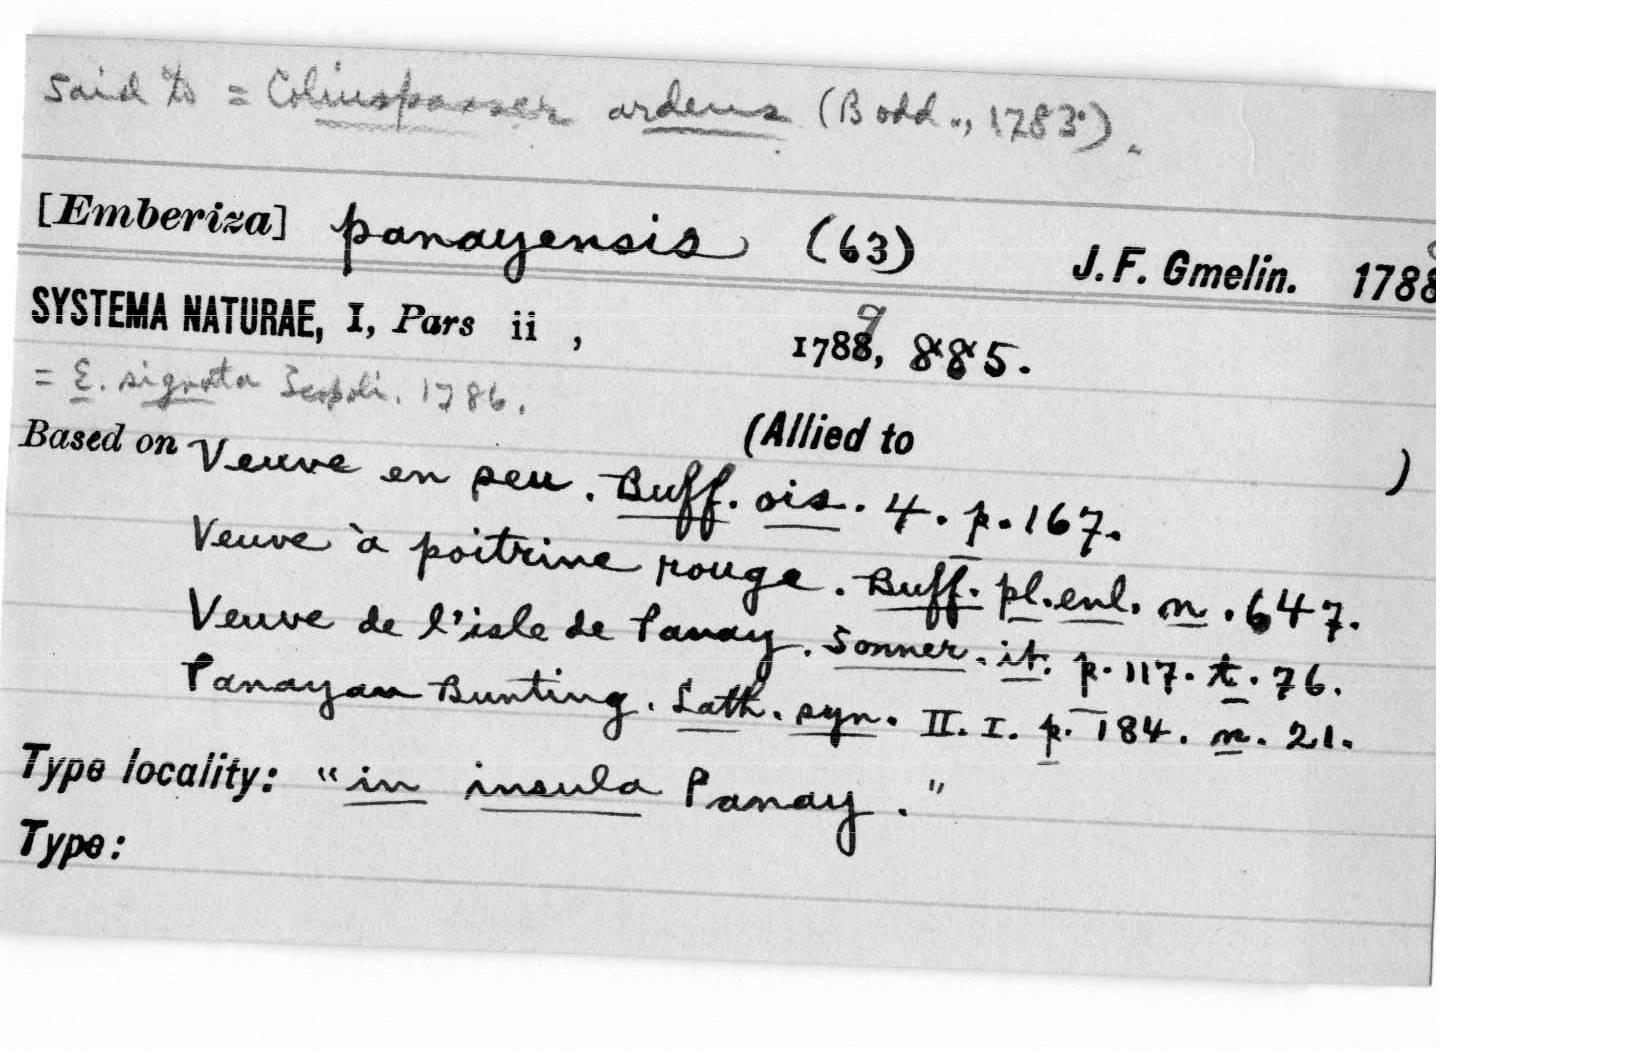 said to = Coliuspasser ardens (Bodd., 1783.).
[Emberiza] panayensis (63) J. F. Gmelin. 1788
SYSTEMA NATURAE, I, Pars ii , 1788, 9 885.
= E. signata Scopoli. 1786.
Based on (Allied to )
Veuve en peu. Buff. ois. 4. p. 167.
Veuve à poitrine rouge. Buff. pl. enl. n. 647.
Veuve de l'isle de Panay. Sonner. it. p. 117. t. 76.
Panayan Bunting. Lath. syn. II. I. p. 184. n. 21.
Type locality: "in insula Panay."
Type: